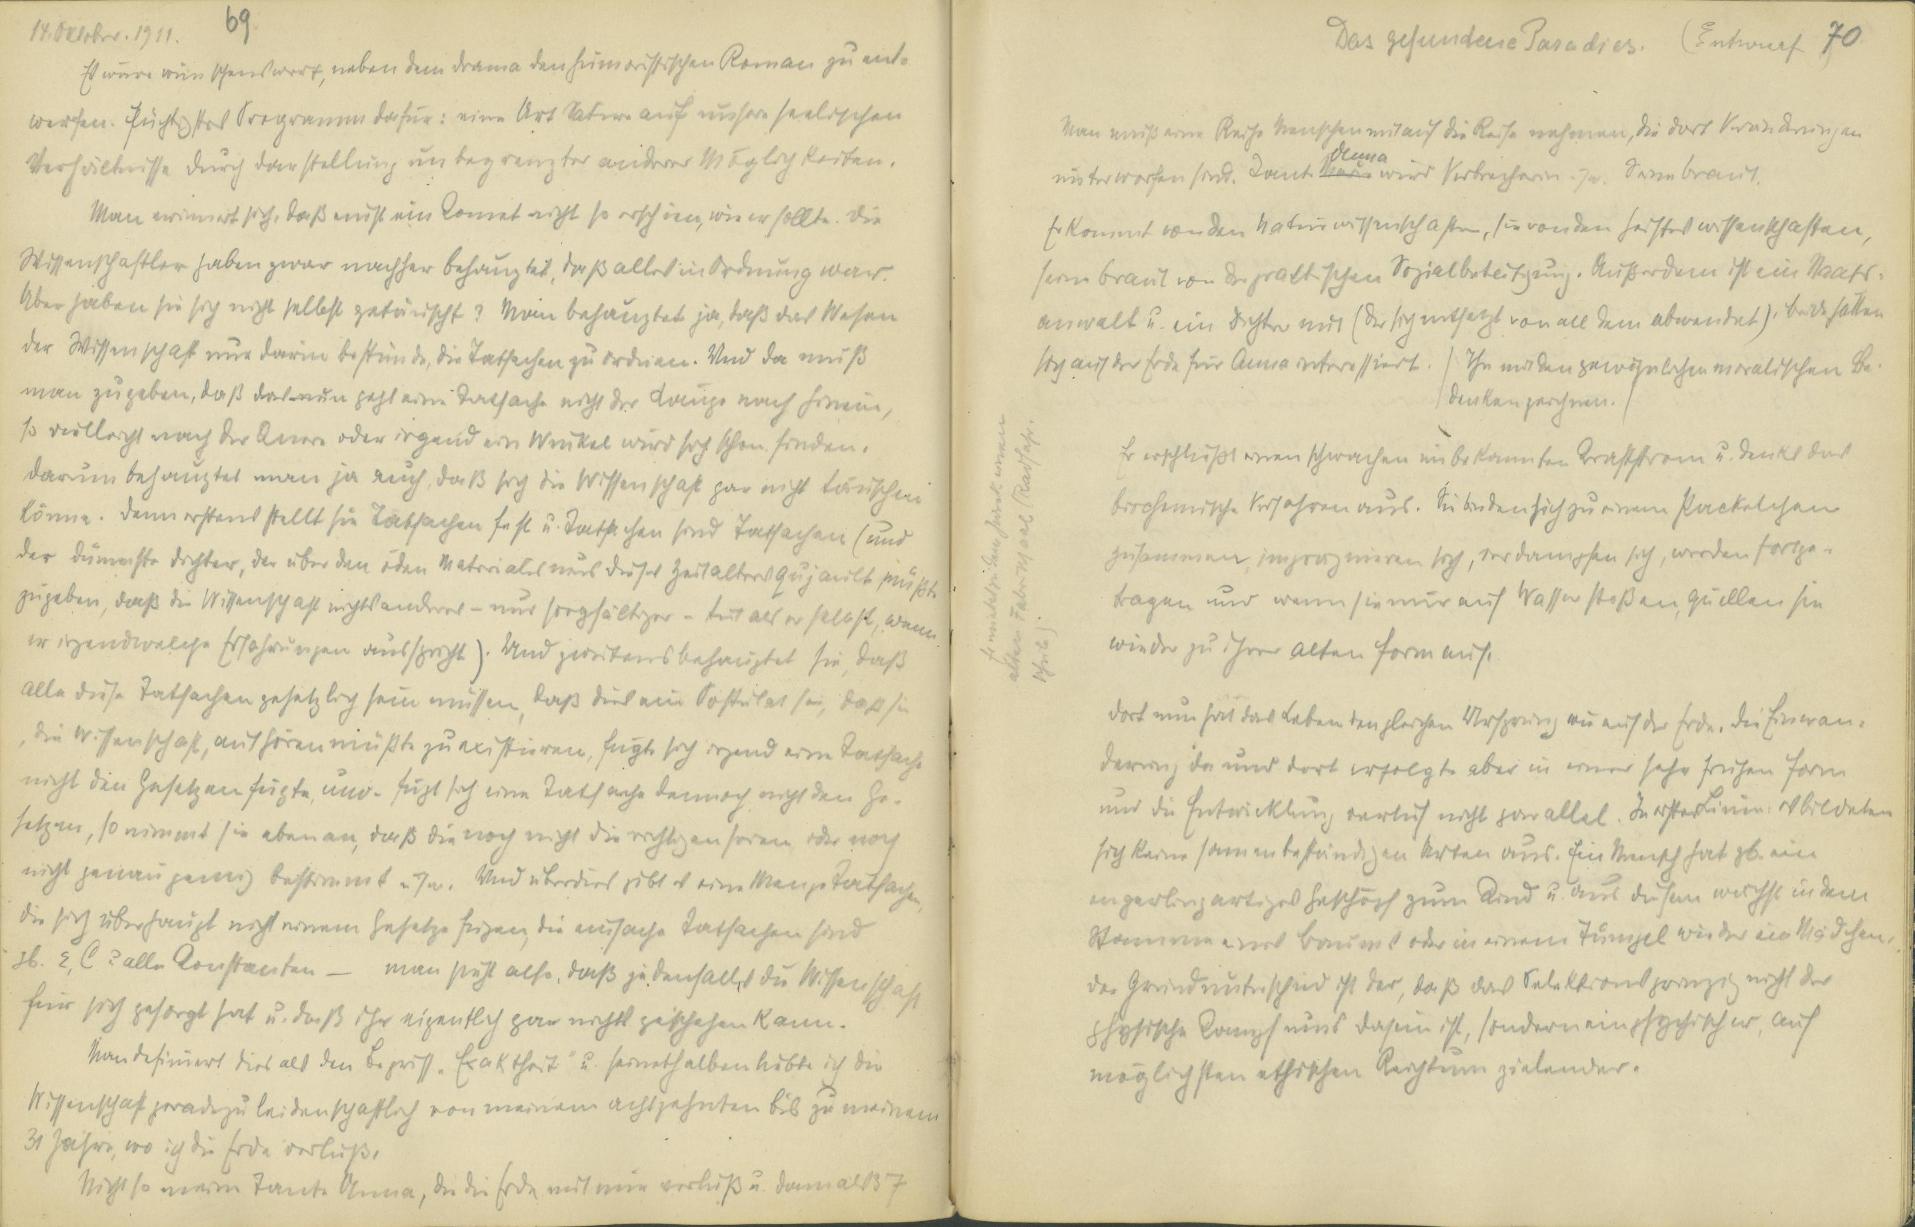 14. Oktober. 1911.
69
Es wäre wünschenswert, neben dem Drama den humoristischen Roman zu ent-
werfen. Flüchtigstes Programm dafür: eine Art Satire auf unsere seelischen
Verhältnisse durch Darstellung unbegrenzter anderer Möglichkeiten.
Man erinnert sich, daß einst ein Komet nicht so erschien, wie er sollte. Die
Wissenschaftler haben zwar nachher behauptet, daß alles in Ordnung war.
Aber haben sie sich nicht selbst getäuscht? Man behauptet ja, daß das Wesen
der Wissenschaft nur darin bestünde, die Tatsachen zu ordnen. Und da muß
man zugeben, daß das nun geht eine Tatsache nicht der Länge nach hinein,
so vielleicht nach der Quere oder irgend ein Winkel wird sich schon finden.
Darum behauptet man ja auch, daß sich die Wissenschaft gar nicht täuschen
könne. Denn erstens stellt sie Tatsachen fest u. Tatsachen sind Tatsachen (und
der dümmste Dichter, der über den öden Materialismus dieses Zeitalters quäult, müßte
zugeben, daß die Wissenschaft nichts anderes – nur sorgfältiger – tut als er selbst, wenn
er irgendwelche Erfahrungen ausspricht). Und zweitens behauptet sie, daß
alle diese Tatsachen gesetzlich sein müssen, daß dies ein Postulat sei, daß sie
, die Wissenschaft, aufhören müßte zu existieren, fügte sich irgend eine Tatsache
nicht den Gesetzen fügte, und – fügt sich eine Tatsache dennoch nicht den Ge-
setzen, so nimmt sie eben an, daß die noch nicht die richtigen seien oder noch
nicht genau genug bestimmt usw. Und überdies gibt es eine Menge Tatsachen,
die sich überhaupt nicht einem Gesetze fügen, die einfache Tatsachen sind
zb. ε, C alle Konstanten — man sieht also, daß jedenfalls die Wissenschaft
für sich gesorgt hat u. daß ihr eigentlich gar nichts geschehen kann.
Man definiert dies als den Begriff „Exaktheit" u. seinethalben liebte ich die
Wissenschaft geradezu leidenschaftlich von meinem achtzehnten bis zu meinem
31 Jahre, wo ich die Erde verließ.
Nicht so meine Tante Anna, die die Erde mit mir verließ u. damals 37
Das gefundene Paradies. (Entwurf
70
Man muß eine Reihe Menschen mit auf die Reise nehmen, die dort Veränderungen
Anna
unterworfen sind. Tante wird Verbrecherin usw. Seine Braut.
Er kommt von den Naturwissenschaften, sie von den Geisteswissenschaften,
seine Braut von der praktischen Sozialbetätigung. Außerdem ist ein Staats-
anwalt u. ein Dichter mit (der sich entsetzt von all dem abwendet). Beide hatten
sich auf der Erde für Anna interessiert. / Ihn mit den gewöhnlichen moralischen Be-
denken zeichnen. /
Er erschließt einen schwachen unbekannten Kraftstrom u. denkt das
biochemische Verfahren aus. Sie binden sich zu einem Packelchen
zusammen, imprägnieren sich, verdampfen sich, werden fortge-
tragen und wenn sie nur auf Wasser stoßen, quellen sie
wieder zu ihrer alten Form auf.
Dort nun hat das Leben den gleichen Ursprung wie auf der Erde. Die Einwan-
derung da und dort erfolgte aber in einer sehr frühen Form
und die Entwicklung verlief nicht parallel. In erster Linie: es bildeten
sich keine samenbeständigen Arten aus. Ein Mensch hat zb. ein
engerlingartiges Geschöpf zum Kind u. aus diesem wächst in dem
Stamme eines Baumes oder in einem Tümpel wieder ein Mädchen.
Der Grundunterschied ist der, daß das Selektionsprinzip nicht der
physische Kampf ums Dasein ist, sondern ein psychischer, auf
möglichsten ethischen Reichtum zielender.